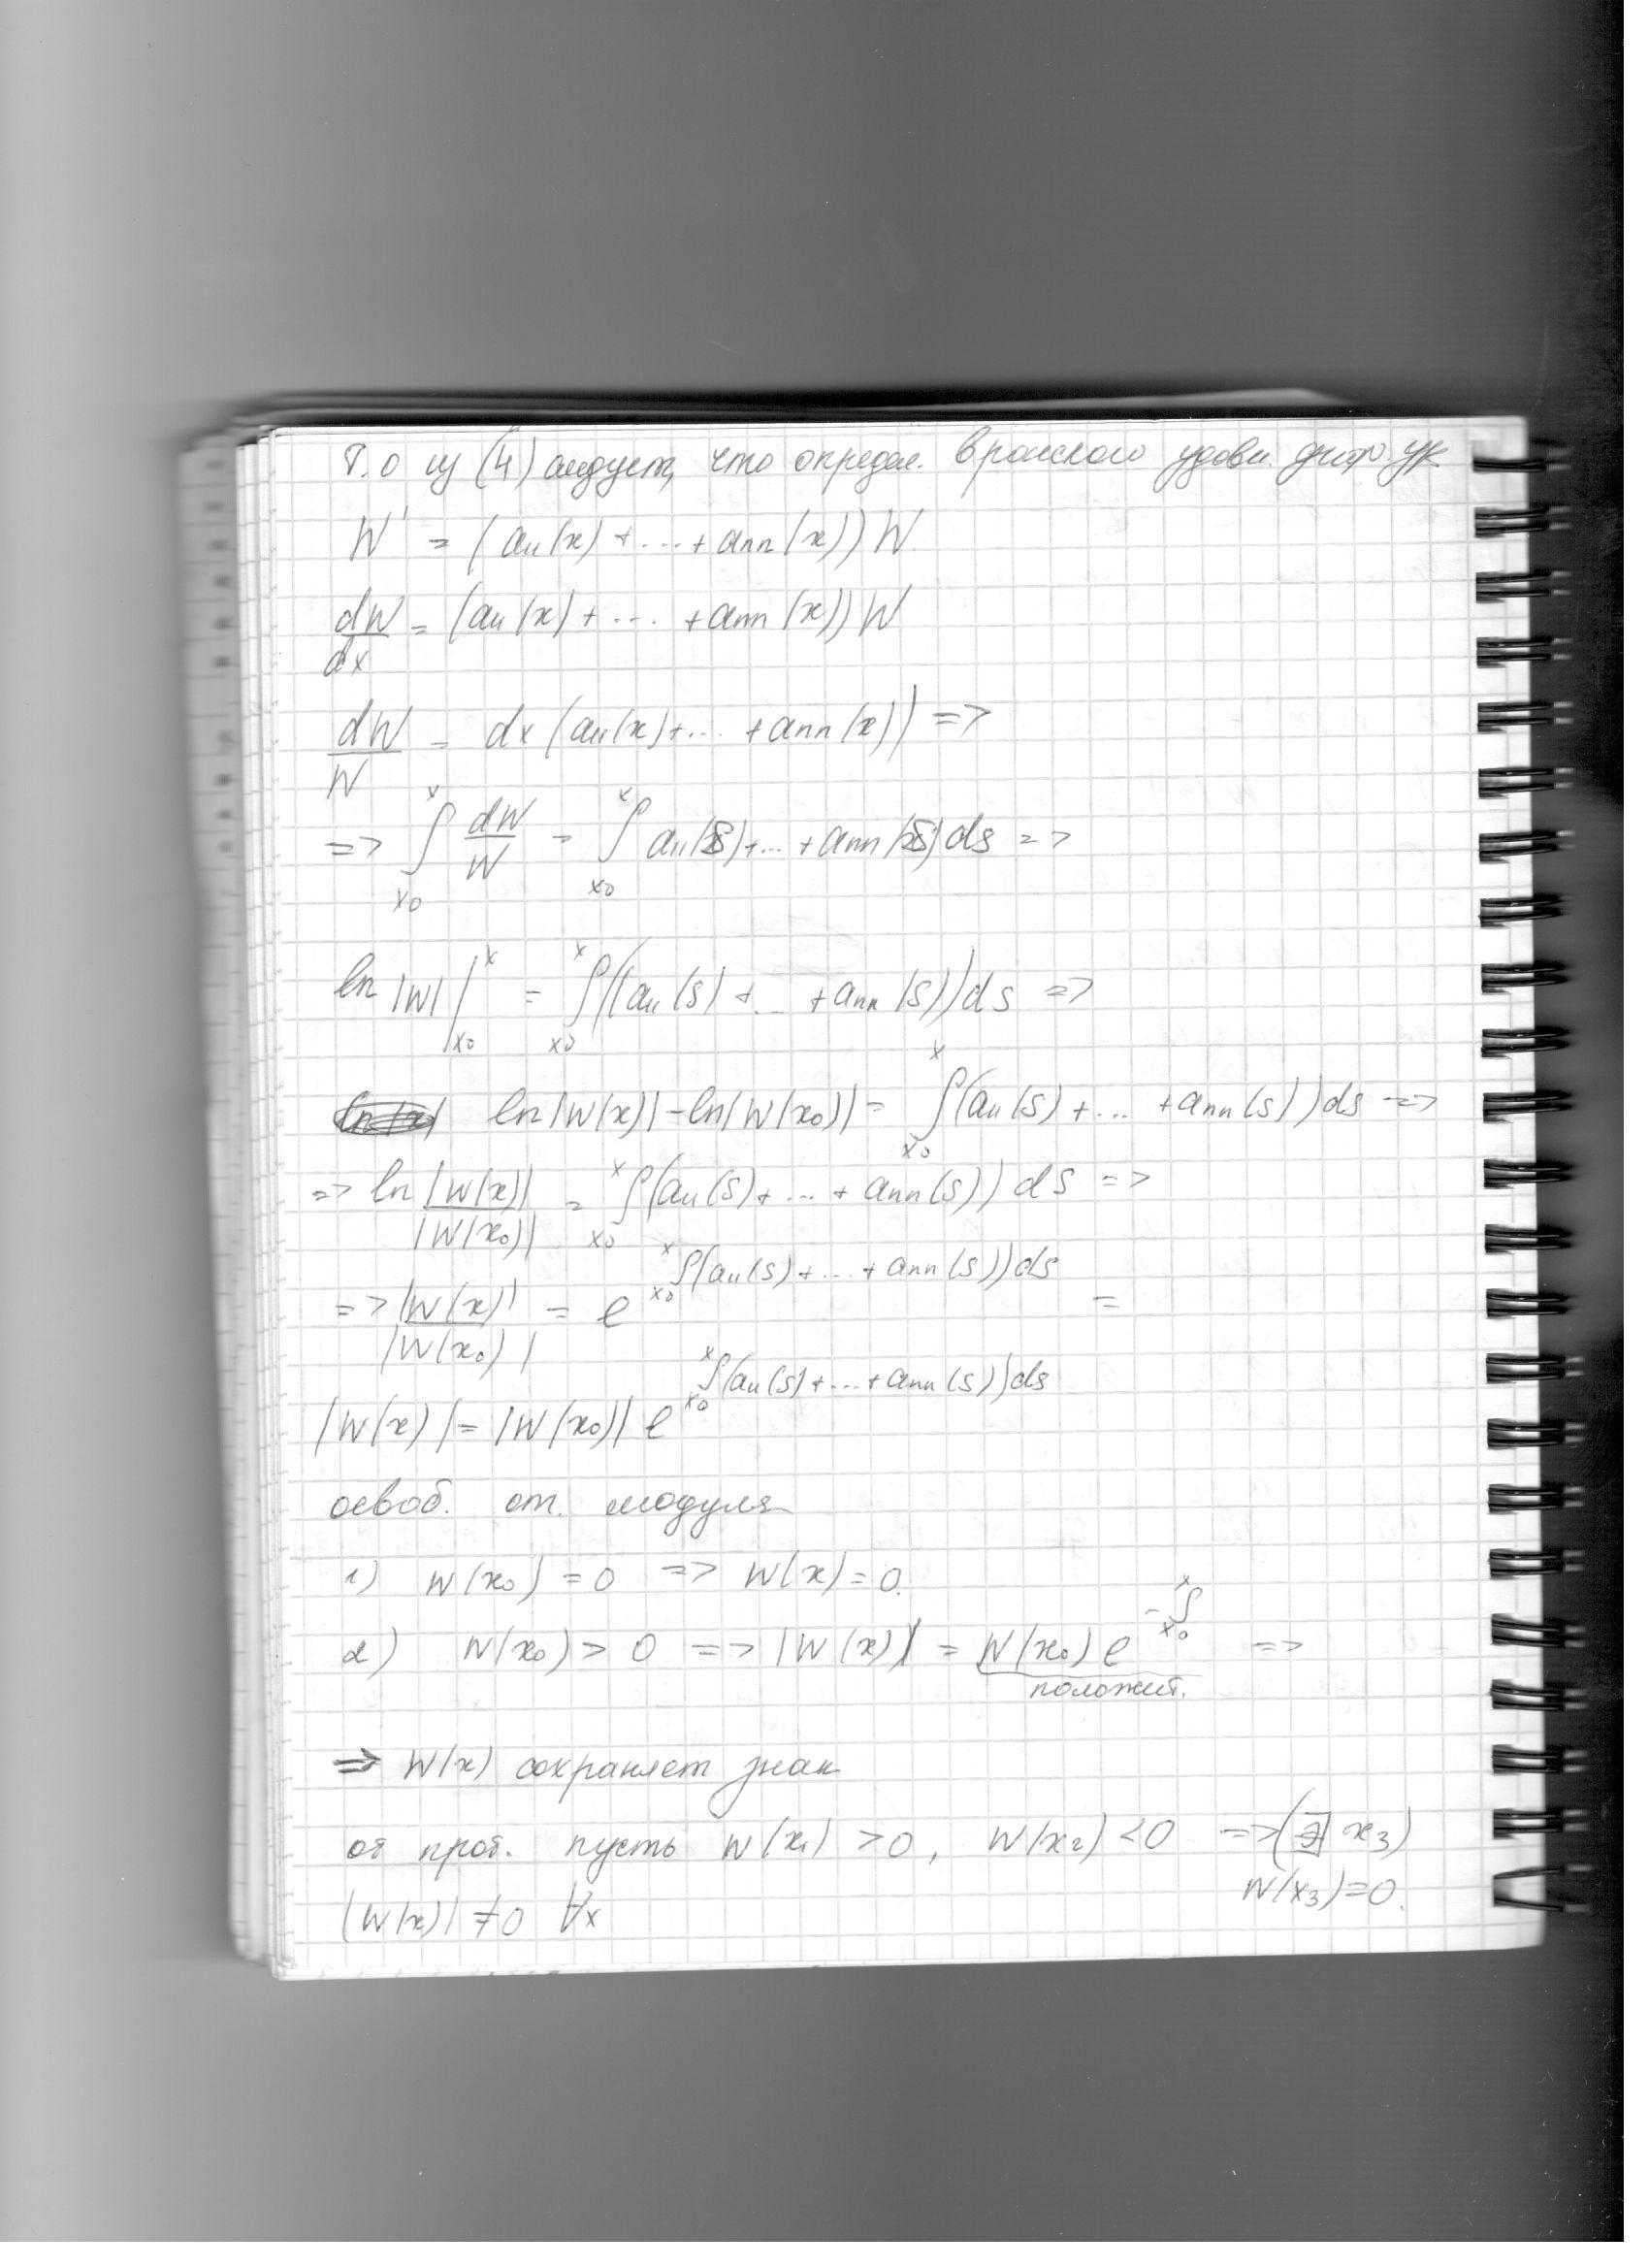 Т.о из (4) следует, что определ. вронского удовл. диф. ур
W' = (a₁₁(x) + ... + aₙₙ(x)) W
dW/dx = (a₁₁(x) + ... + aₙₙ(x)) W
dW/W = dx (a₁₁(x) + ... + aₙₙ(x)) =>
=> ∫ₓ₀ˣ dW/W = ∫ₓ₀ˣ a₁₁(s) + ... + aₙₙ(s) ds =>
ln |W| |ₓ₀ˣ = ∫ₓ₀ˣ ((a₁₁(s) + ... + aₙₙ(s)) ds =>
ln |W(x)| - ln |W(x₀)| = ∫ₓ₀ˣ (a₁₁(s) + ... + aₙₙ(s)) ds =>
=> ln |W(x)|/|W(x₀)| = ∫ₓ₀ˣ (a₁₁(s) + ... + aₙₙ(s)) ds =>
=> |W(x)|/|W(x₀)| = e^{∫ₓ₀ˣ (a₁₁(s) + ... + aₙₙ(s)) ds} =
|W(x)| = |W(x₀)| e^{∫ₓ₀ˣ (a₁₁(s) + ... + aₙₙ(s)) ds}
освоб. от. модуля
1) W(x₀) = 0 => W(x) = 0.
2) W(x₀) > 0 => |W(x)| = W(x₀) e^{-∫ₓ₀ˣ} =>
положит.
=> W(x) сохраняет знак
от прот. пусть W(x₁) > 0, W(x₂) < 0 => (∃ x₃)
W(x₃) = 0.
|W(x)| ≠ 0 ∀x